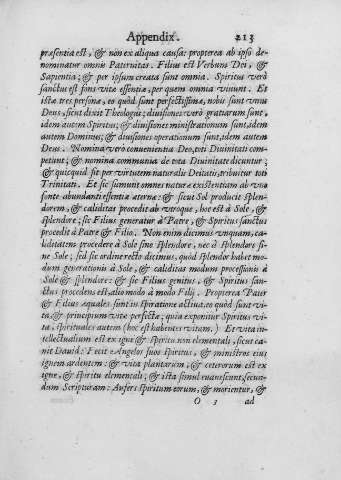 Appendix. 213
præsentia est, & non ex aliqua causa: propterea ab ipso de-
nominatur omnis Paternitas. Filius est Verbum Dei, &
Sapientia; & per ipsum creata sunt omnia. Spiritus verò
sanctus est fons vitæ essentiæ, per quem omnia viuunt. Et
istæ tres personæ, eo quòd sunt perfectissimæ, nobis sunt vnus
Deus, sicut dixit Theologus; diuisiones verò gratiarum sunt,
idem autem Spiritus; & diuisiones ministrationum sunt, idem
autem Dominus; & diuisiones operationum sunt, idem autem
Deus. Nomina verò conuenientia Deo, toti Diuinitati com-
petunt; & nomina communia de tota Diuinitate dicuntur;
& quicquid sit per virtutem naturalis Deitatis, tribuitur toti
Trinitati. Et sic sumunt omnes naturæ existentiam ab vno
fonte abundanti essentiæ æternæ: & sicut Sol producit splen-
dorem, & caliditas procedit ab vtroque, hoc est à Sole, &
splendore; sic Filius generatur à Patre, & Spiritus sanctus
procedit à Patre & Filio. Non enim dicimus vnquam, ca-
liditatem procedere à Sole sine splendore, nec à splendore si-
ne Sole; sed sic ordine recto dicimus, quòd splendor habet mo-
dum generationis à Sole, & caliditas modum processionis à
Sole & splendore: & sic Filius genitus, & Spiritus san-
ctus procedens est, alio modo à modo Filij. Propterea Pater
& Filius equales sunt in spiratione actiua, eo quòd sunt vi-
ta, & principium vitæ perfectæ; quia exponitur Spiritus vi-
ta, spirituales autem (hoc est habentes vitam.) Et vita in-
tellectualium est ex igne & spiritu non elementali, sicut ca-
nit Dauid: Fecit Angelos suos spiritus, & ministros eius
ignem ardentem: & vita plantarum, & ceterorum est ex
igne, & spiritu elementali; & ista simul euanescunt, secun-
dum Scripturam: Aufers spiritum eorum, & morientur, &
O 3 ad